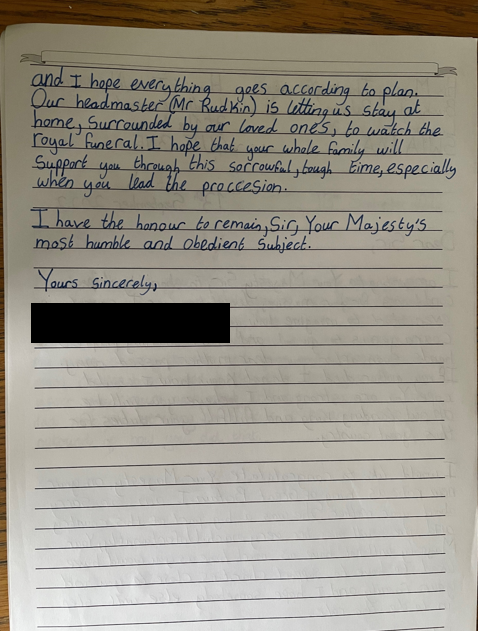 and I hope everything goes according to plan.
Our headmaster (Mr Rudkin) is letting us stay at
home, surrounded by our loved ones, to watch the
royal funeral. I hope that your whole family will
support you through this sorrowful, tough time, especially
when you lead the proccesion.
I have the honour to remain, Sir, Your Majesty's
most humble and obedient subject.
Yours sincerely,